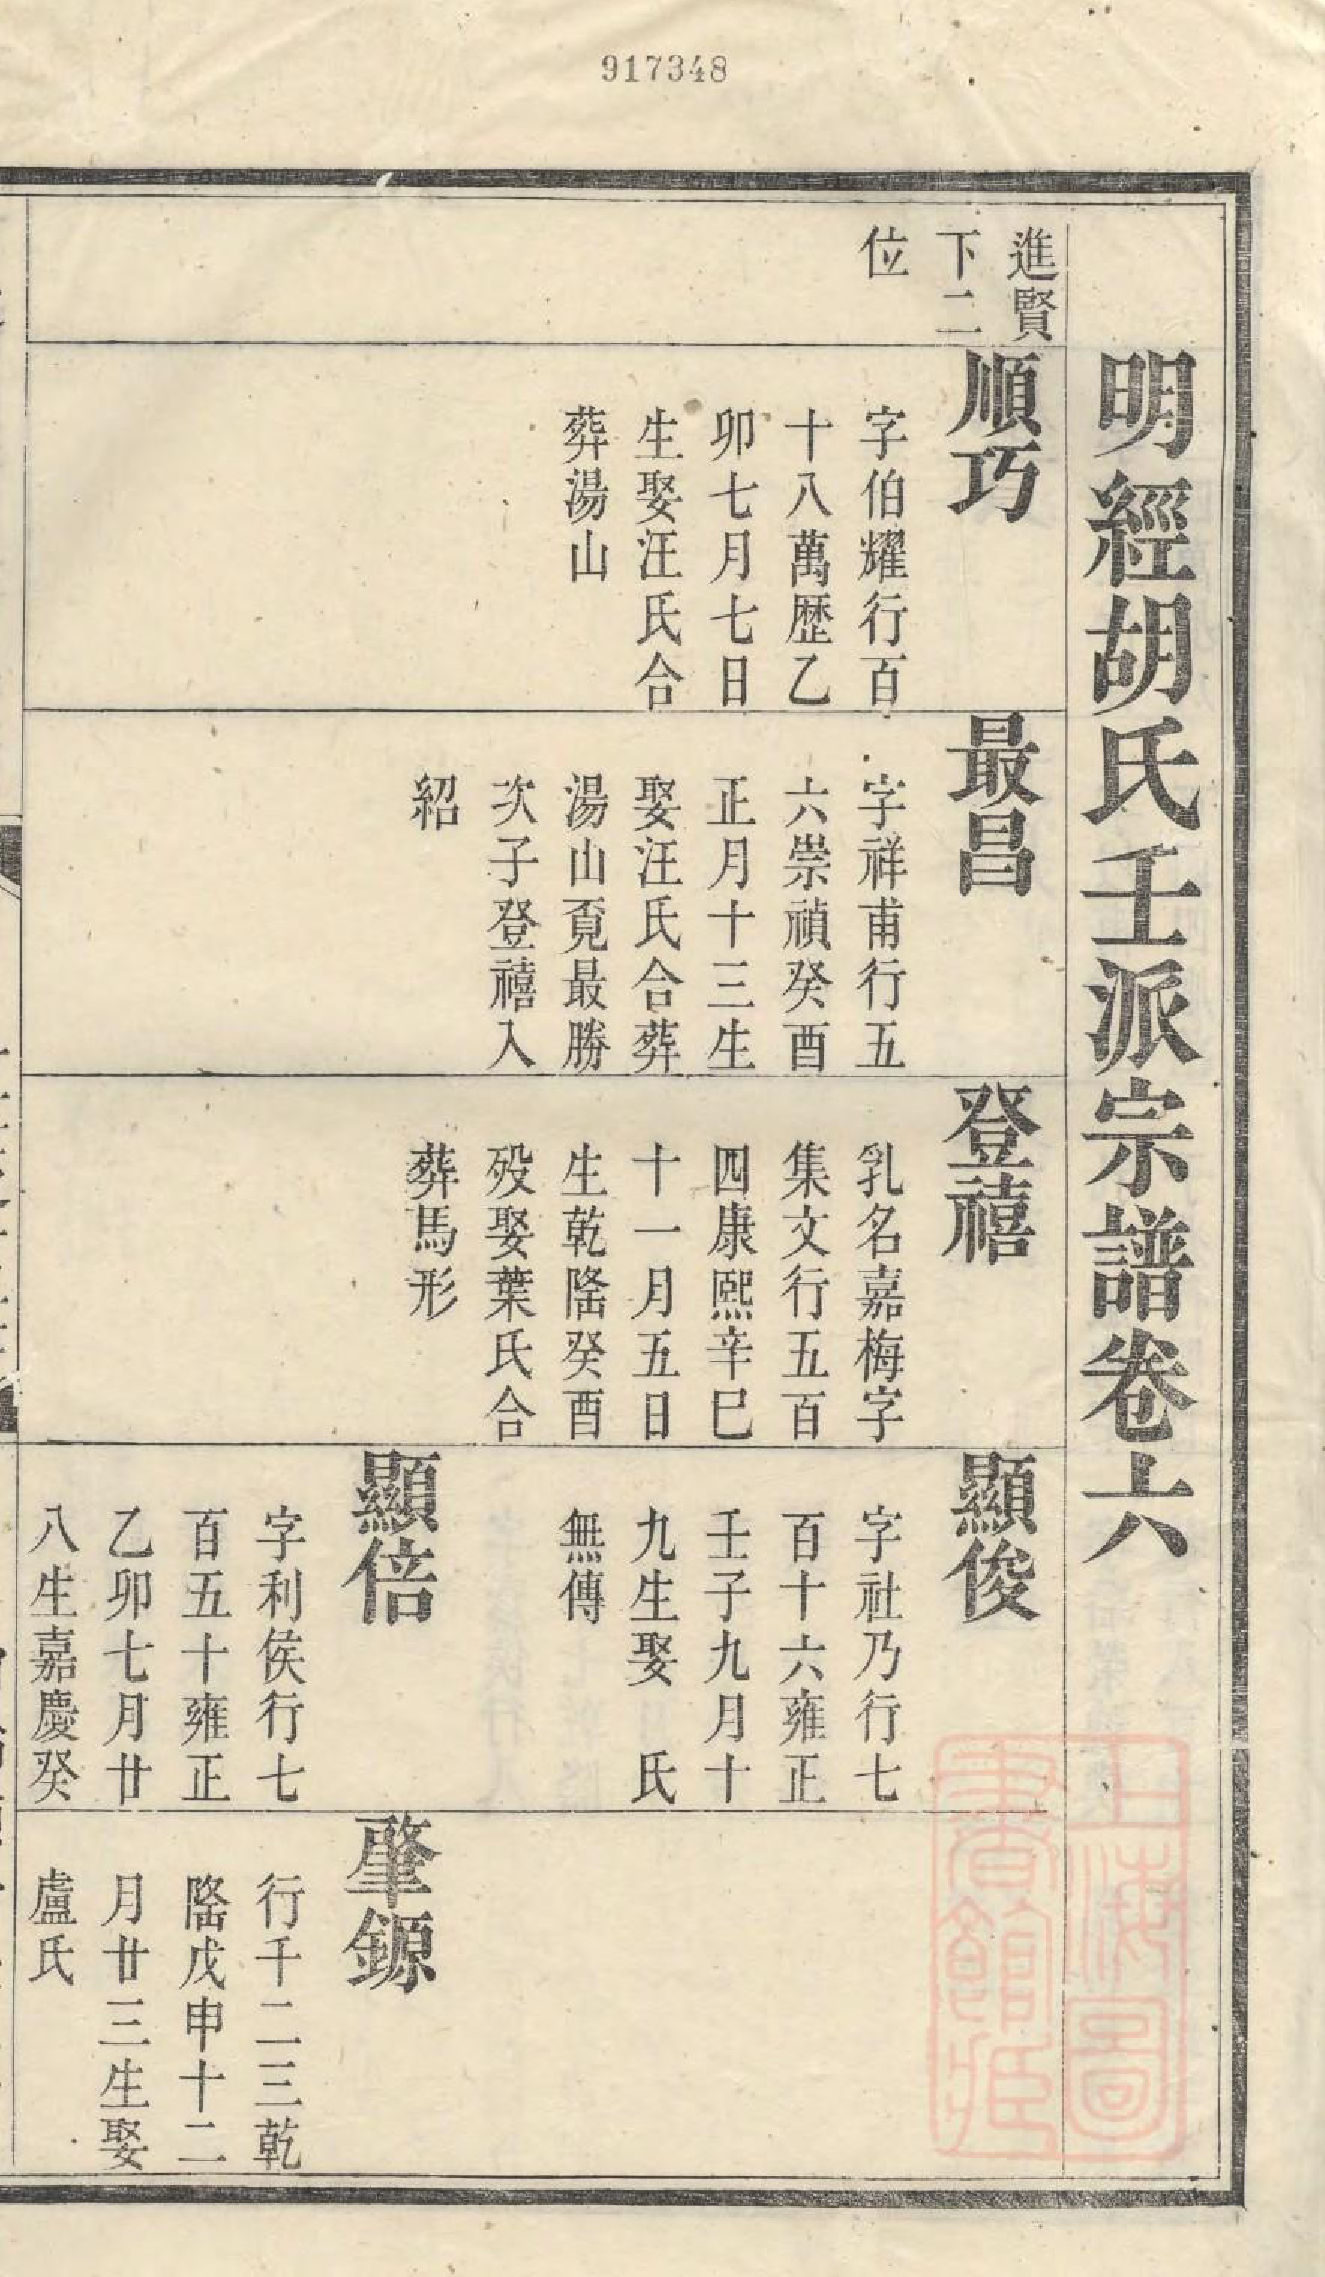 917348
明經胡氏壬派宗譜卷六
進賢
下二
位
順巧
字伯耀行百
十八萬歷乙
卯七月七日
生娶汪氏合
葬湯山
最昌
字祥甫行五
六崇禎癸酉
正月十三生
娶汪氏合葬
湯山覔最勝
次子登禧入
紹
登禧
乳名嘉梅字
集文行五百
四康熙辛巳
十一月五日
生乾隆癸酉
歿娶葉氏合
葬馬形
顯俊
字社乃行七
百十六雍正
壬子九月十
九生娶 氏
無傳
顯倍
字利侯行七
百五十雍正
乙卯七月廿
八生嘉慶癸
肇鎵
行千二三乾
隆戊申十二
月廿三生娶
盧氏
上海圖
書館藏